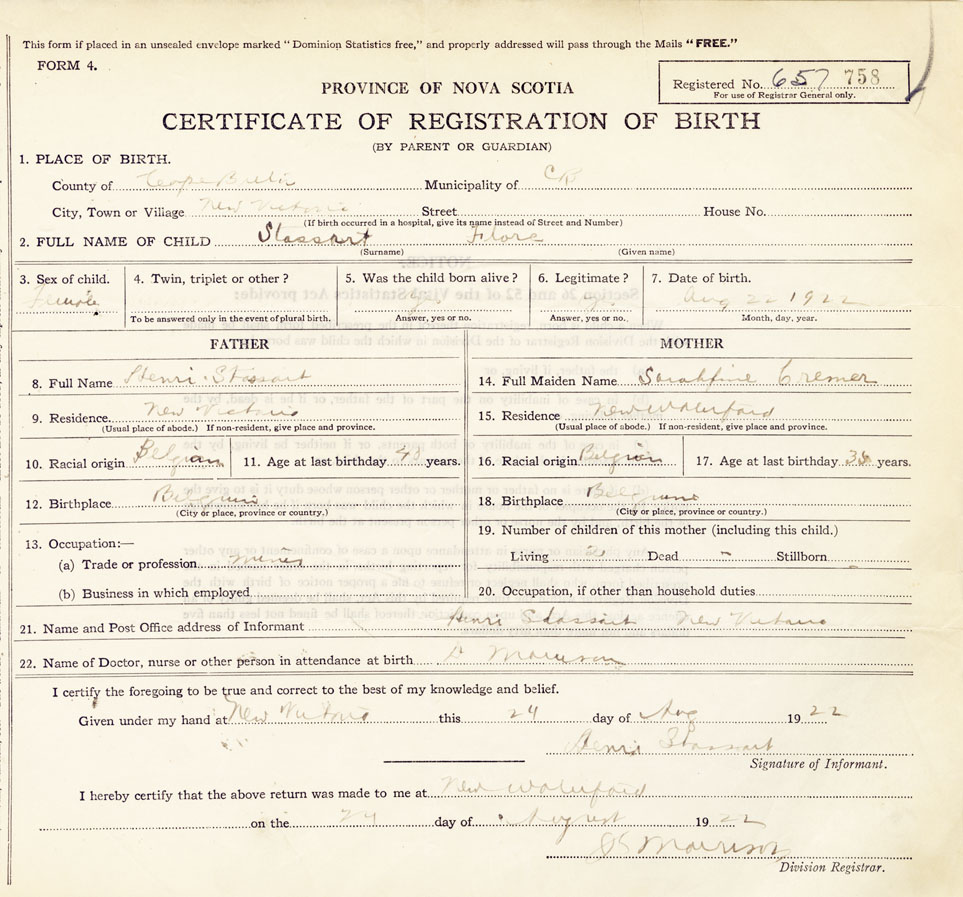 This form if placed in an unsealed envelope marked "Dominion Statistics free," and properly addressed will pass through the Mails "FREE."
FORM 4.
Registered No. 657 758
For use of Registrar General only.
PROVINCE OF NOVA SCOTIA
CERTIFICATE OF REGISTRATION OF BIRTH
(BY PARENT OR GUARDIAN)
1. PLACE OF BIRTH.
County of Cape Breton Municipality of CB
City, Town or Village New Victoria Street House No.
(If birth occurred in a hospital, give its name instead of Street and Number)
2. FULL NAME OF CHILD Stassart Flore
(Surname) (Given name)
3. Sex of child. 4. Twin, triplet or other? 5. Was the child born alive? 6. Legitimate? 7. Date of birth.
Female Aug 22 1922
To be answered only in the event of plural birth. Answer, yes or no. Answer, yes or no. Month, day, year.
FATHER MOTHER
8. Full Name Henri Stassart 14. Full Maiden Name Cremer
9. Residence. New Victoria 15. Residence New Waterford
(Usual place of abode.) If non-resident, give place and province. (Usual place of abode.) If non-resident, give place and province.
10. Racial origin Belgian 11. Age at last birthday 43 years. 16. Racial origin Belgian 17. Age at last birthday years.
12. Birthplace Belgium 18. Birthplace Belgium
(City or place, province or country.) (City or place, province or country.)
19. Number of children of this mother (including this child.)
13. Occupation:—
Living Dead - Stillborn
(a) Trade or profession miner
(b) Business in which employed 20. Occupation, if other than household duties
21. Name and Post Office address of Informant Henri Stassart New Victoria
22. Name of Doctor, nurse or other person in attendance at birth Morrison
I certify the foregoing to be true and correct to the best of my knowledge and belief.
Given under my hand at New Victoria this 24 day of Aug 1922
Henri Stassart
Signature of Informant.
I hereby certify that the above return was made to me at New Waterford
on the 24 day of August 1922
Morrison
Division Registrar.